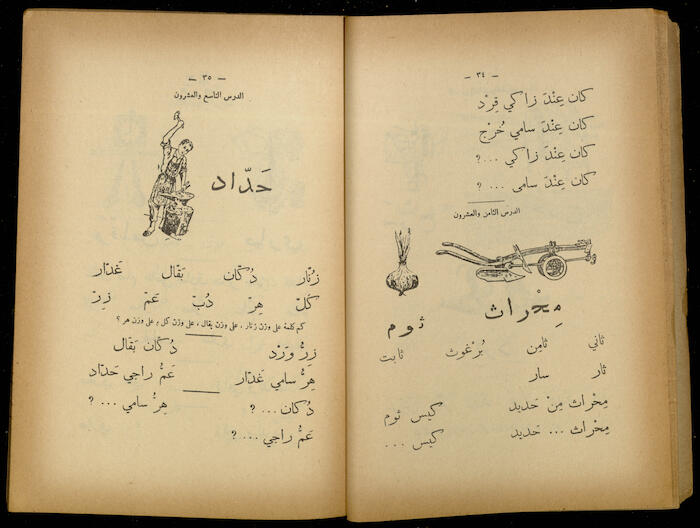 — ٣٤ —
كان عِنْدَ زاكي قِرْد
كان عِنْدَ سامي خُرْج
كان عِنْدَ زاكي ...؟
كان عِنْدَ سامي ... ؟
الدرس الثامن والعشرون
مِحْراث ثوم
ثاني ثامِن بُرْغوث ثابت
ثار سار
مِحْراث مِنْ حَديد كيس ثوم
مِحْراث ... حَديد كيس ...
— ٣٥ —
الدرس التاسع والعشرون
حَدّاد
زُنّار دُكّان بَقّال غَدّار
كُلّ هِرّ دُبّ عَمّ زِرّ
كم كلمة على وزن زنار ، على وزن بقال ، على وزن كل ، على وزن هر ؟
زِرُّ وَرْد دُكّان بَقّال
هِرُّ سامي غَدّار عَمُّ راجي حَدّاد
دُكّان ... ؟ هِرُّ سامي ... ؟
عَمُّ راجي ... ؟